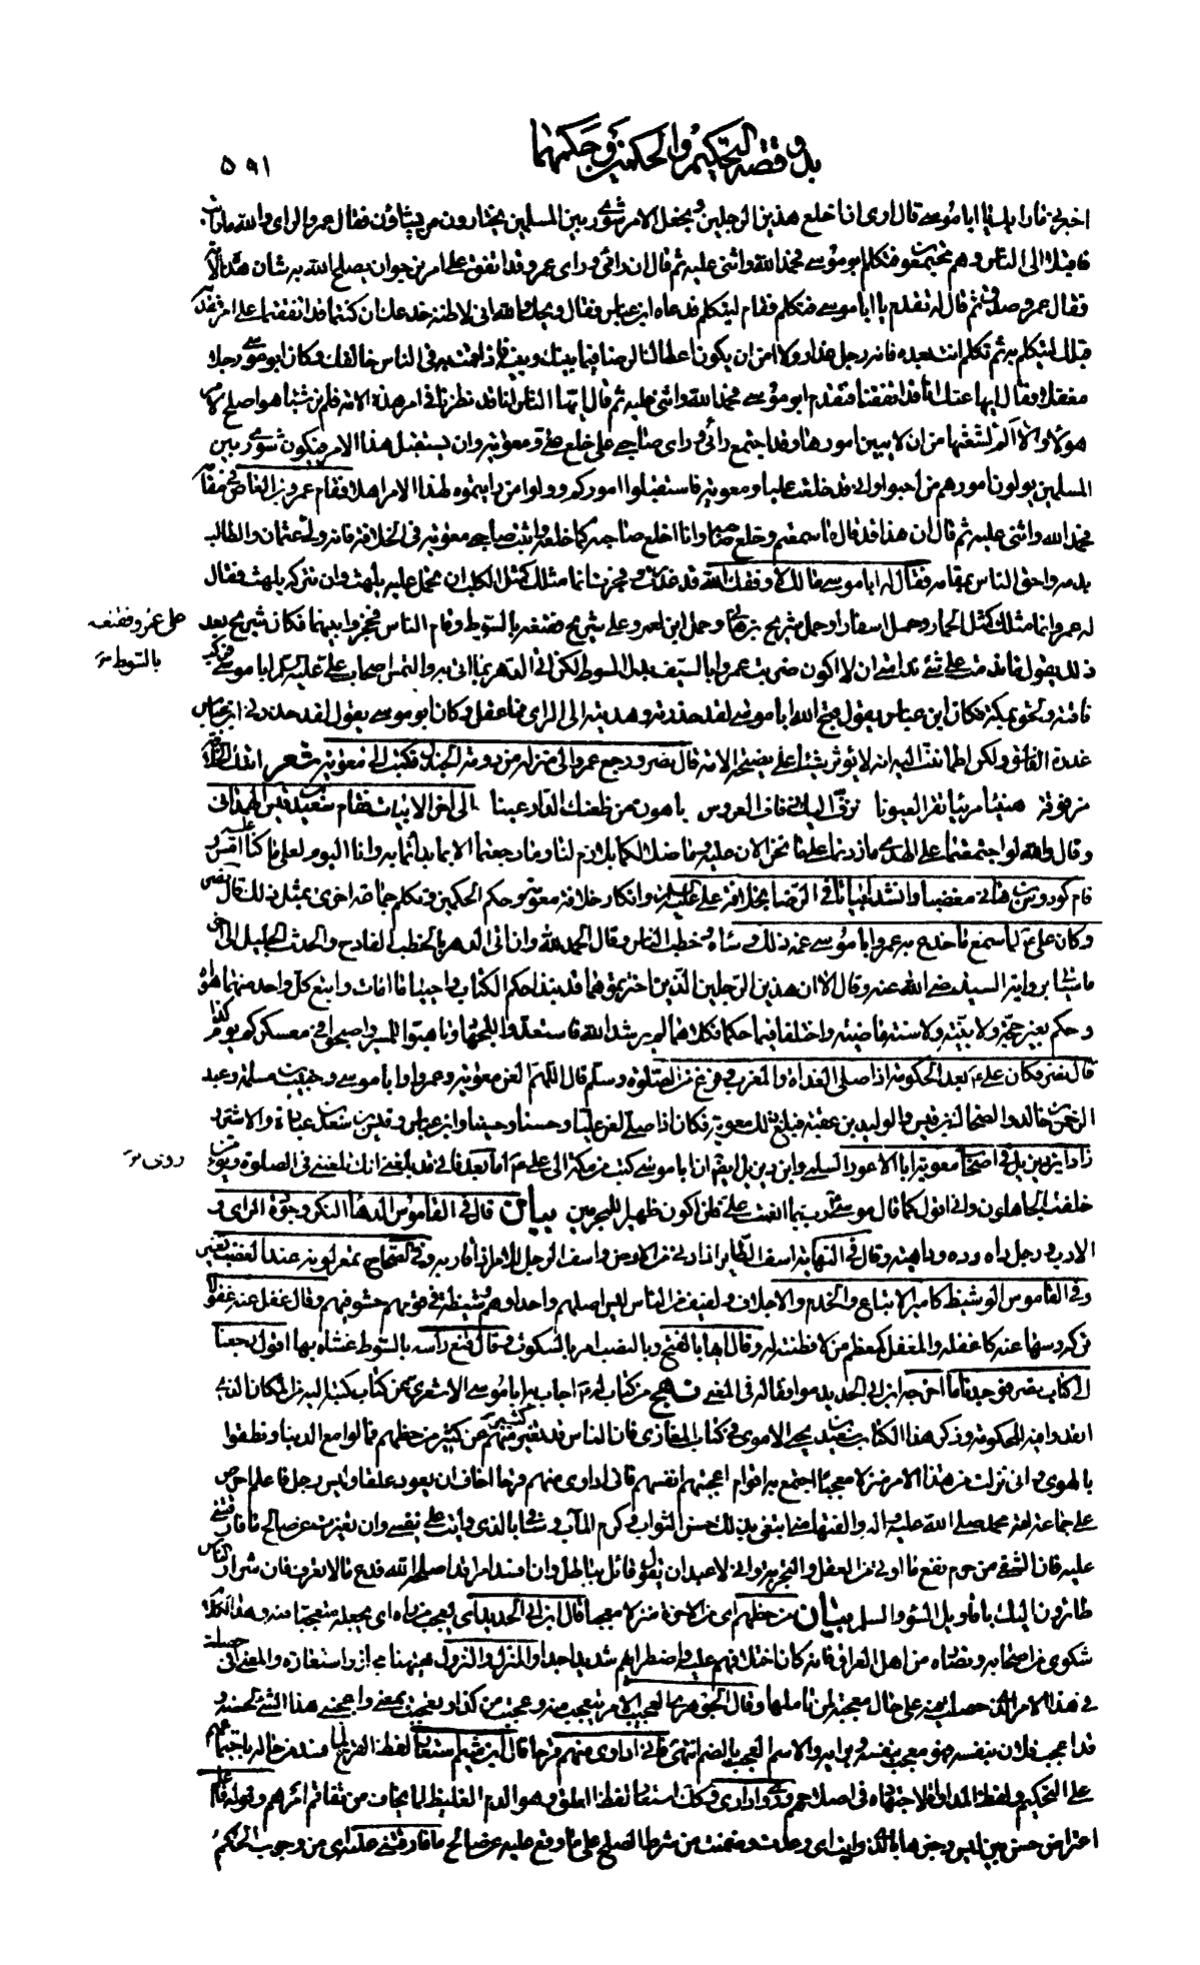 بدو قصة التحكيم والحكمين وحكمهما
٥٩١
اخبرني ما رايك يا ابا موسى قال ارى انا اخلع هذين الرجلين ونجعل الامر شورى بين المسلمين يختارون من يشاؤن فقال عمرو الراى والله ما رايت
فاقبلا الى الناس وهم مجتمعون فتكلم ابو موسى فحمد الله واثنى عليه ثم قال ان رائى وراى عمرو قد اتفق على امر نرجو ان يصلح الله به شان هذه الامة
فقال عمرو صدق ثم قال له تقدم يا ابا موسى فتكلم فقام ليتكلم فدعاه ابن عباس فقال ويحك والله انى لاظنه خدعك ان كنتما قد اتفقتما على امر فقدمه
قبلك ليتكلم به ثم تكلم انت بعده فانه رجل غدار ولا امن ان يكون اعطاك الرضا فيما بينك وبينه فاذا قمت به في الناس خالفك وكان ابو موسى رجلا
مغفلا فقال ايها عنك انا قد اتفقنا فتقدم ابو موسى فحمد الله واثنى عليه ثم قال ايها الناس انا قد نظرنا في امر هذه الامة فلم نر شيئا هو اصلح لامر
هؤلاء ولا الم لشعثها من ان لا يبين امورها وقد اجتمع رائى وراى صاحبي على خلع علي ومعوية وان يستقبل هذا الامر فيكون شورى بين
المسلمين يولون امورهم من احبوا واني قد خلعت عليا ومعوية فاستقبلوا اموركم وولوا من رايتموه لهذا الامر اهلا فقام عمرو بن العاص في مقامه
فحمد الله واثنى عليه ثم قال ان هذا قد قال ما سمعتم وخلع صاحبه وانا اخلع صاحبه كما خلعه واثبت صاحبي معوية في الخلافة فانه ولي عثمان والطالب
بدمه واحق الناس بمقامه فقال له ابو موسى مالك لا وفقك الله قد غدرت وفجرت انما مثلك كمثل الكلب ان تحمل عليه يلهث وان تتركه يلهث فقال
له عمرو انما مثلك كمثل الحمار يحمل اسفارا وحمل شريح بن هاني وحمل ابن لعمرو على شريح فقنعه بالسوط وقام الناس فحجزوا بينهما فكان شريح بعد
على عمرو فقنعه
بالسوط
ذلك يقول ما ندمت على شئ ندامتي ان لا اكون ضربت عمروا بالسيف بدل السوط لكن اتى الدهر بما اتى به والتمس اصحاب علي عليه السلام ابا موسى فركب
ناقته ولحق بمكة فكان ابن عباس يقول قبح الله ابا موسى لقد حذرته وهديته الى الراى فما عقل وكان ابو موسى يقول لقد حذرني ابن عباس
غدرة الفاسق ولكن اطماننت اليه انه لا يؤثر شيئا على نصيحة الامة قال نصر ورجع عمرو الى منزله من دومة الجندل فكتب الى معوية شعر اتتك الخلافة
مزفوفة هنيئا مريئا تقر العيونا تزف اليك زفاف العروس باهون من طعنك الدارعينا الى اخر الابيات فقام سعيد بن قيس الهمداني
وقال والله لو اجتمعتما على الهدى ما زدتما على ما نحن الان عليه وما ضلالكما بلازم لنا وما رجعتما الا بما بدأتما به وانا اليوم لعلى ما كنا عليه امس
قام كردوس بن هاني مغضبا وانشد ابياتا في الرضا بخلافة علي عليه السلام وانكار خلافة معوية وحكم الحكمين وتكلم جماعة اخرى بمثل ذلك قال نصر
وكان علي ع لما سمع ما خدع به عمرو ابا موسى غمه ذلك وساءه وخطب الناس وقال الحمد لله وان اتى الدهر بالخطب الفادح والحدث الجليل الى اخر
ما سياتي برواية السيد رضي الله عنه وقال الا ان هذين الرجلين الذين اخترتموهما قد نبذا حكم الكتاب واحييا ما امات واتبع كل واحد منهما هواه
وحكم بغير حجة ولا بينة ولا سنة ماضية واختلفا فيما حكما فكلاهما لم يرشد الله فاستعدوا للجهاد وتاهبوا للمسير واصبحوا في معسكركم يوم كذا
قال نصر فكان علي ع بعد الحكومة اذا صلى الغداة والمغرب وفرغ من الصلوة وسلم قال اللهم العن معوية وعمروا وابا موسى وحبيب بن مسلمة وعبد
الرحمن بن خالد والضحاك بن قيس والوليد بن عقبة فبلغ ذلك معوية فكان اذا صلى لعن عليا وحسنا وحسينا وابن عباس وقيس بن سعد بن عبادة والاشتر
زاد ابن ديزيل في اصحاب معوية ابا الاعور السلمي وابن ديزيل ايضا ان ابا موسى كتب من مكة الى علي ع اما بعد فاني قد بلغني انك تلعنني في الصلوة ويؤمن
وروى
خلفك الجاهلون واني اقول كما قال موسى رب بما انعمت علي فلن اكون ظهيرا للمجرمين بيان قال في القاموس الدهاء النكر وجودة الراى و
الادب ورجل داه وده وداهية وقال في النهاية اسف الطاير اذا دنى من الارض واسف الرجل للامر اذا قاربه وفي الصحاح تمعر لونه عند الغضب تغير
وفي القاموس الوشيظ كامير الاتباع والخدم والاجلاف ولفيف من الناس ليس اصلهم واحدا وهم وشيظة في قومهم حشو فيهم وقال غفل عنه غفولا
تركه وسها عنه كاغفله والمغفل كمعظم من لا فطنة له وقال ايها بالفتح وبالنصب امر بالسكوت وقال قنع راسه بالسوط غشاه بها اقول رجعنا
الى كتاب نصر فوجدنا ما اخرجه ابن ابي الحديد موافقا له في المعنى نهج من كتاب له ع اجاب به ابا موسى الاشعري عن كتاب كتبه اليه من المكان الذي
اتعدوا فيه للحكومة وذكر هذا الكتاب سعيد بن يحيى الاموي في كتاب المغازي فان الناس قد تغير كثير منهم عن كثير من حظهم فمالوا مع الدنيا ونطقوا
بالهوى واني نزلت من هذا الامر منزلا معجبا اجتمع به اقوام اعجبتهم انفسهم فاني اداوي منهم قرحا اخاف ان يعود علقا وليس رجل فاعلم احرص
على جماعة امة محمد صلى الله عليه واله والفتها مني ابتغي بذلك حسن الثواب وكرم المآب وسافي بالذي وايت على نفسي وان تغيرت عن صالح ما فارقتني
عليه فان الشقي من حرم نفع ما اوتي من العقل والتجربة واني لاعبد ان يقول قائل بباطل وان افسد امرا قد اصلحه الله فدع ما لا تعرف فان شرار الناس
طائرون اليك باقاويل السوء والسلم بيان من حظهم اى من الاخرة منزلا معجبا قال ابن ابي الحديد اى يعجب من راه اى يجعله متعجبا منه وهذا الكلام
شكوى من اصحابه ونصاره من اهل العراق فانه كان اختلافهم عليه واضطرابهم شديدا جدا والمنزل والنزول ههنا مجاز واستعارة والمعنى اني حصلت
في هذا الامر الذي حصلت فيه على حال معجبة لمن تاملها وقال الجوهري العجيب الامر يتعجب منه وعجبت من كذا وتعجبت بمعنى واعجبني هذا الشئ لحسنه و
قد اعجب فلان بنفسه فهو معجب بنفسه وبرايه والاسم العجب بالضم انتهى فاني اداوي منهم قرحا قال ابن ميثم استعار لفظ القرح لما فسد من حاله باجتماعهم
على التحكيم ولفظ المداواة لاجتهاده في اصلاحهم وروي اداري وكذلك استعار لفظ العلق وهو الدم الغليظ لما يخاف من تفاقم امرهم وقوله فاعلم
اعتراض حسن بين ليس وخبرها بالذي وايت اى وعدت وضمنت من شرط الصلح على ما وقع عليه عن صالح ما فارقتني عليه اى من وجوب الحكم